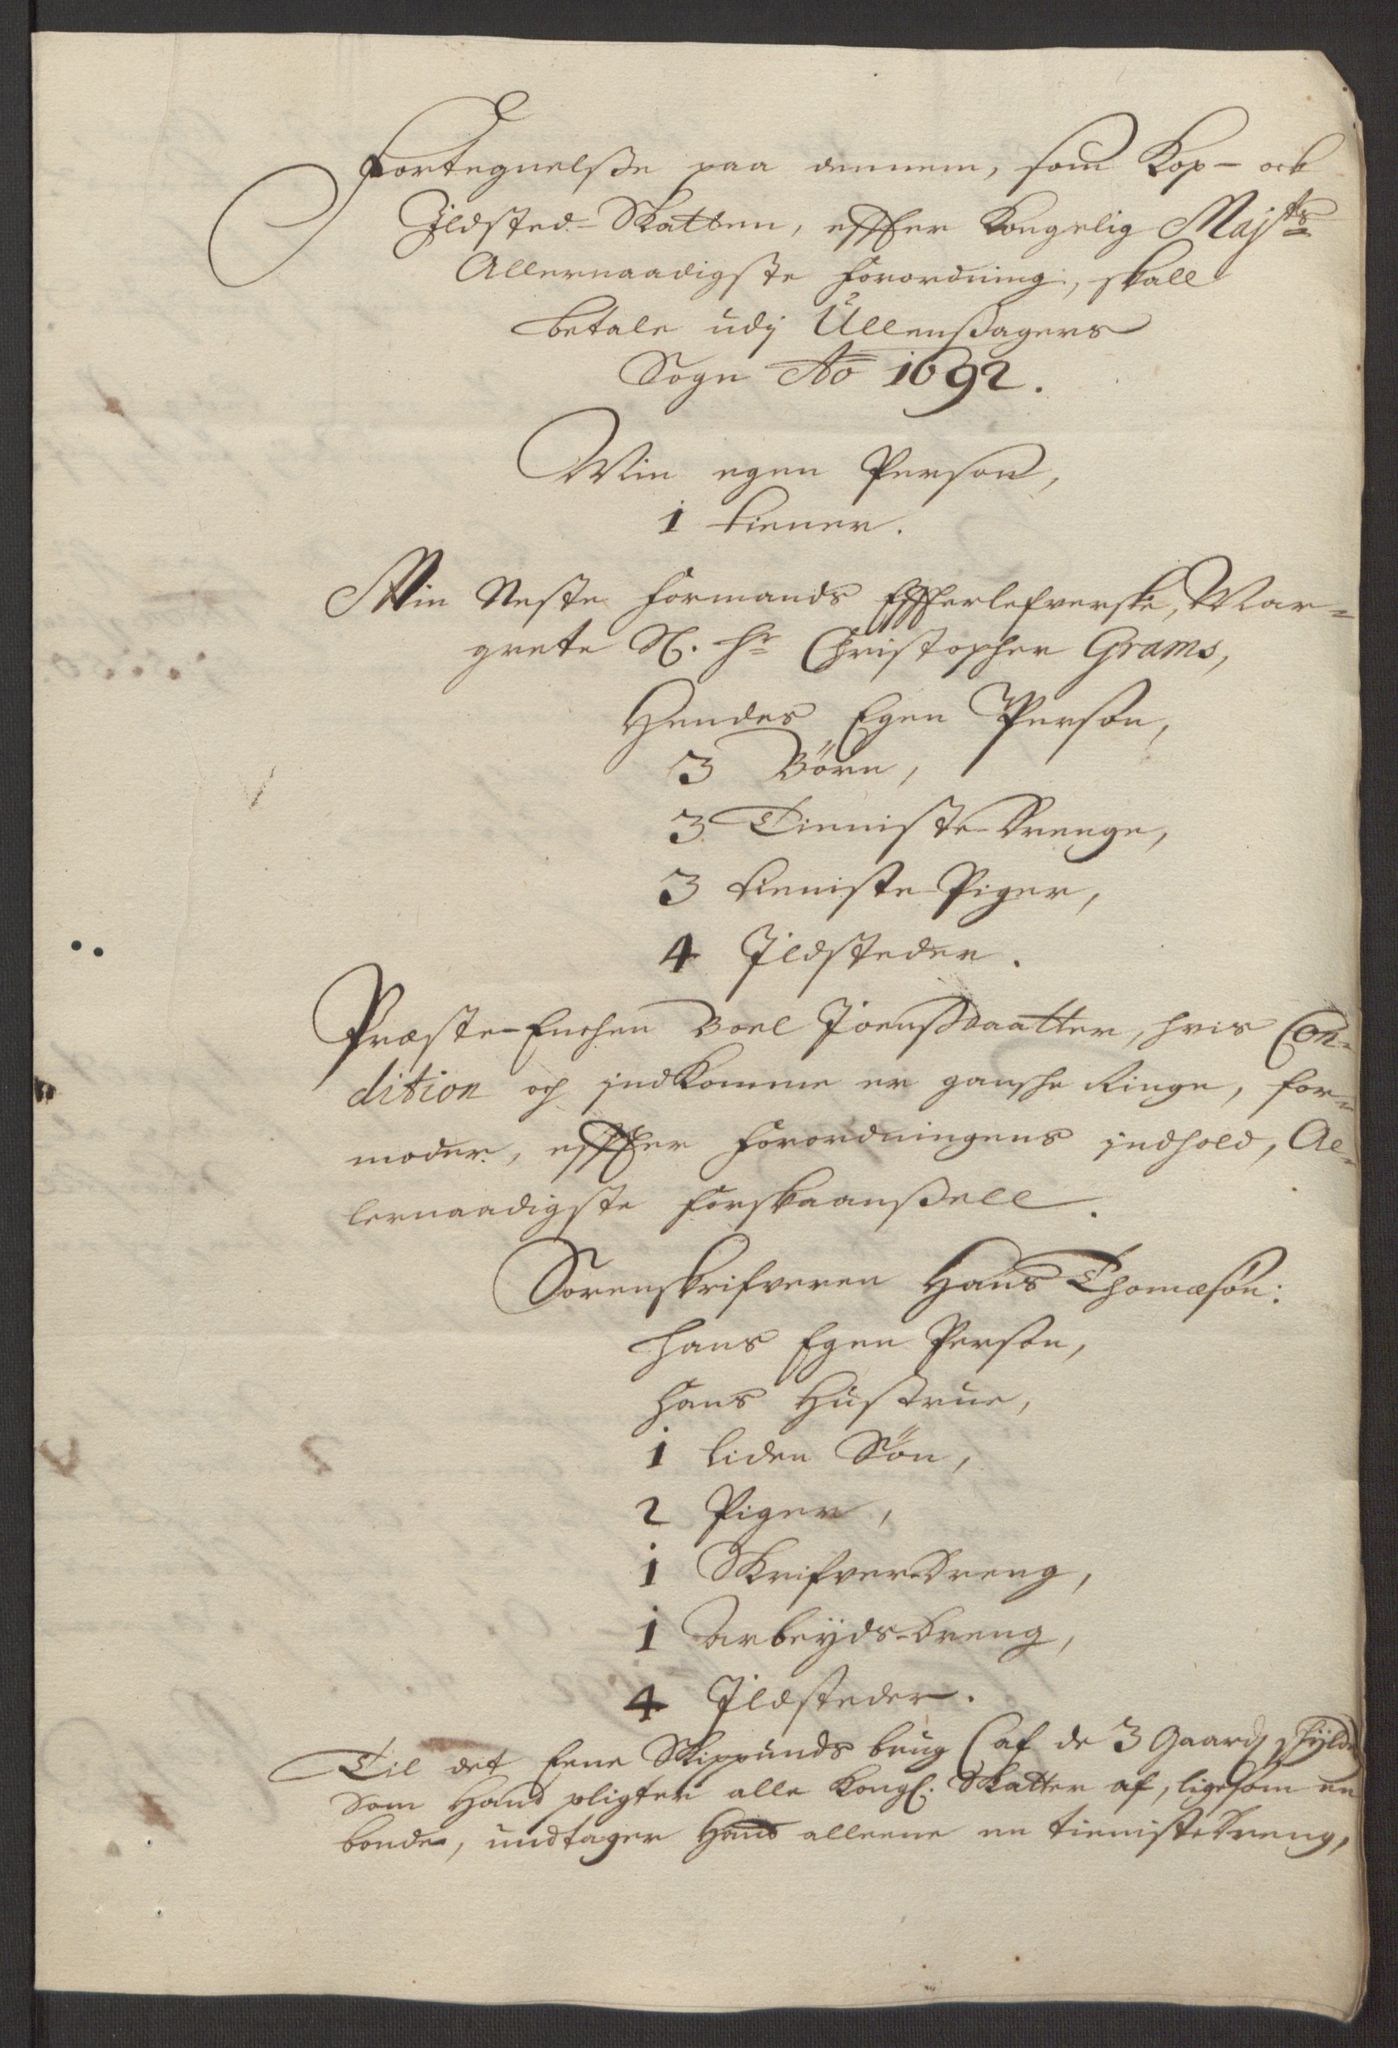 Fortegnelsse paa dennem, som Kop- och
Ildsted-Skatten, effter Kongelig Majts
Allernaadigste forordning, skall
betale udj Ullensagers
Sogn Ao 1692.
Min egen Person,
1 tiener.
Min Neste formands Effterlefverske, Mar-
grete Sl. Hr Christopher Grams,
Hendes Egen Person,
3 Börn,
3 Tieniste-Drenge,
3 tieniste-Piger,
4 Ildsteder.
Præste-Enchen Boel Joenssdaatter, hvis Con-
dition og indkomme er gansche Ringe, for-
moder, effter forordningens indhold, Al-
lernaadigste forskaansell.
Sorenskrifveren Hans Thomæsön:
hans Egen Person,
hans Hustrue,
1 liden Sön,
2 Piger,
1 Skrifver-Dreng,
1 Arbeyds-Dreng,
4 Ildsteder.
Til det Eene Skippunds brug (af de 3 Gaards skyld
som Hand pligter alle Kongl. Skatter af, ligesom en
bonde, undtager Hand alleene en tienisteDreng,